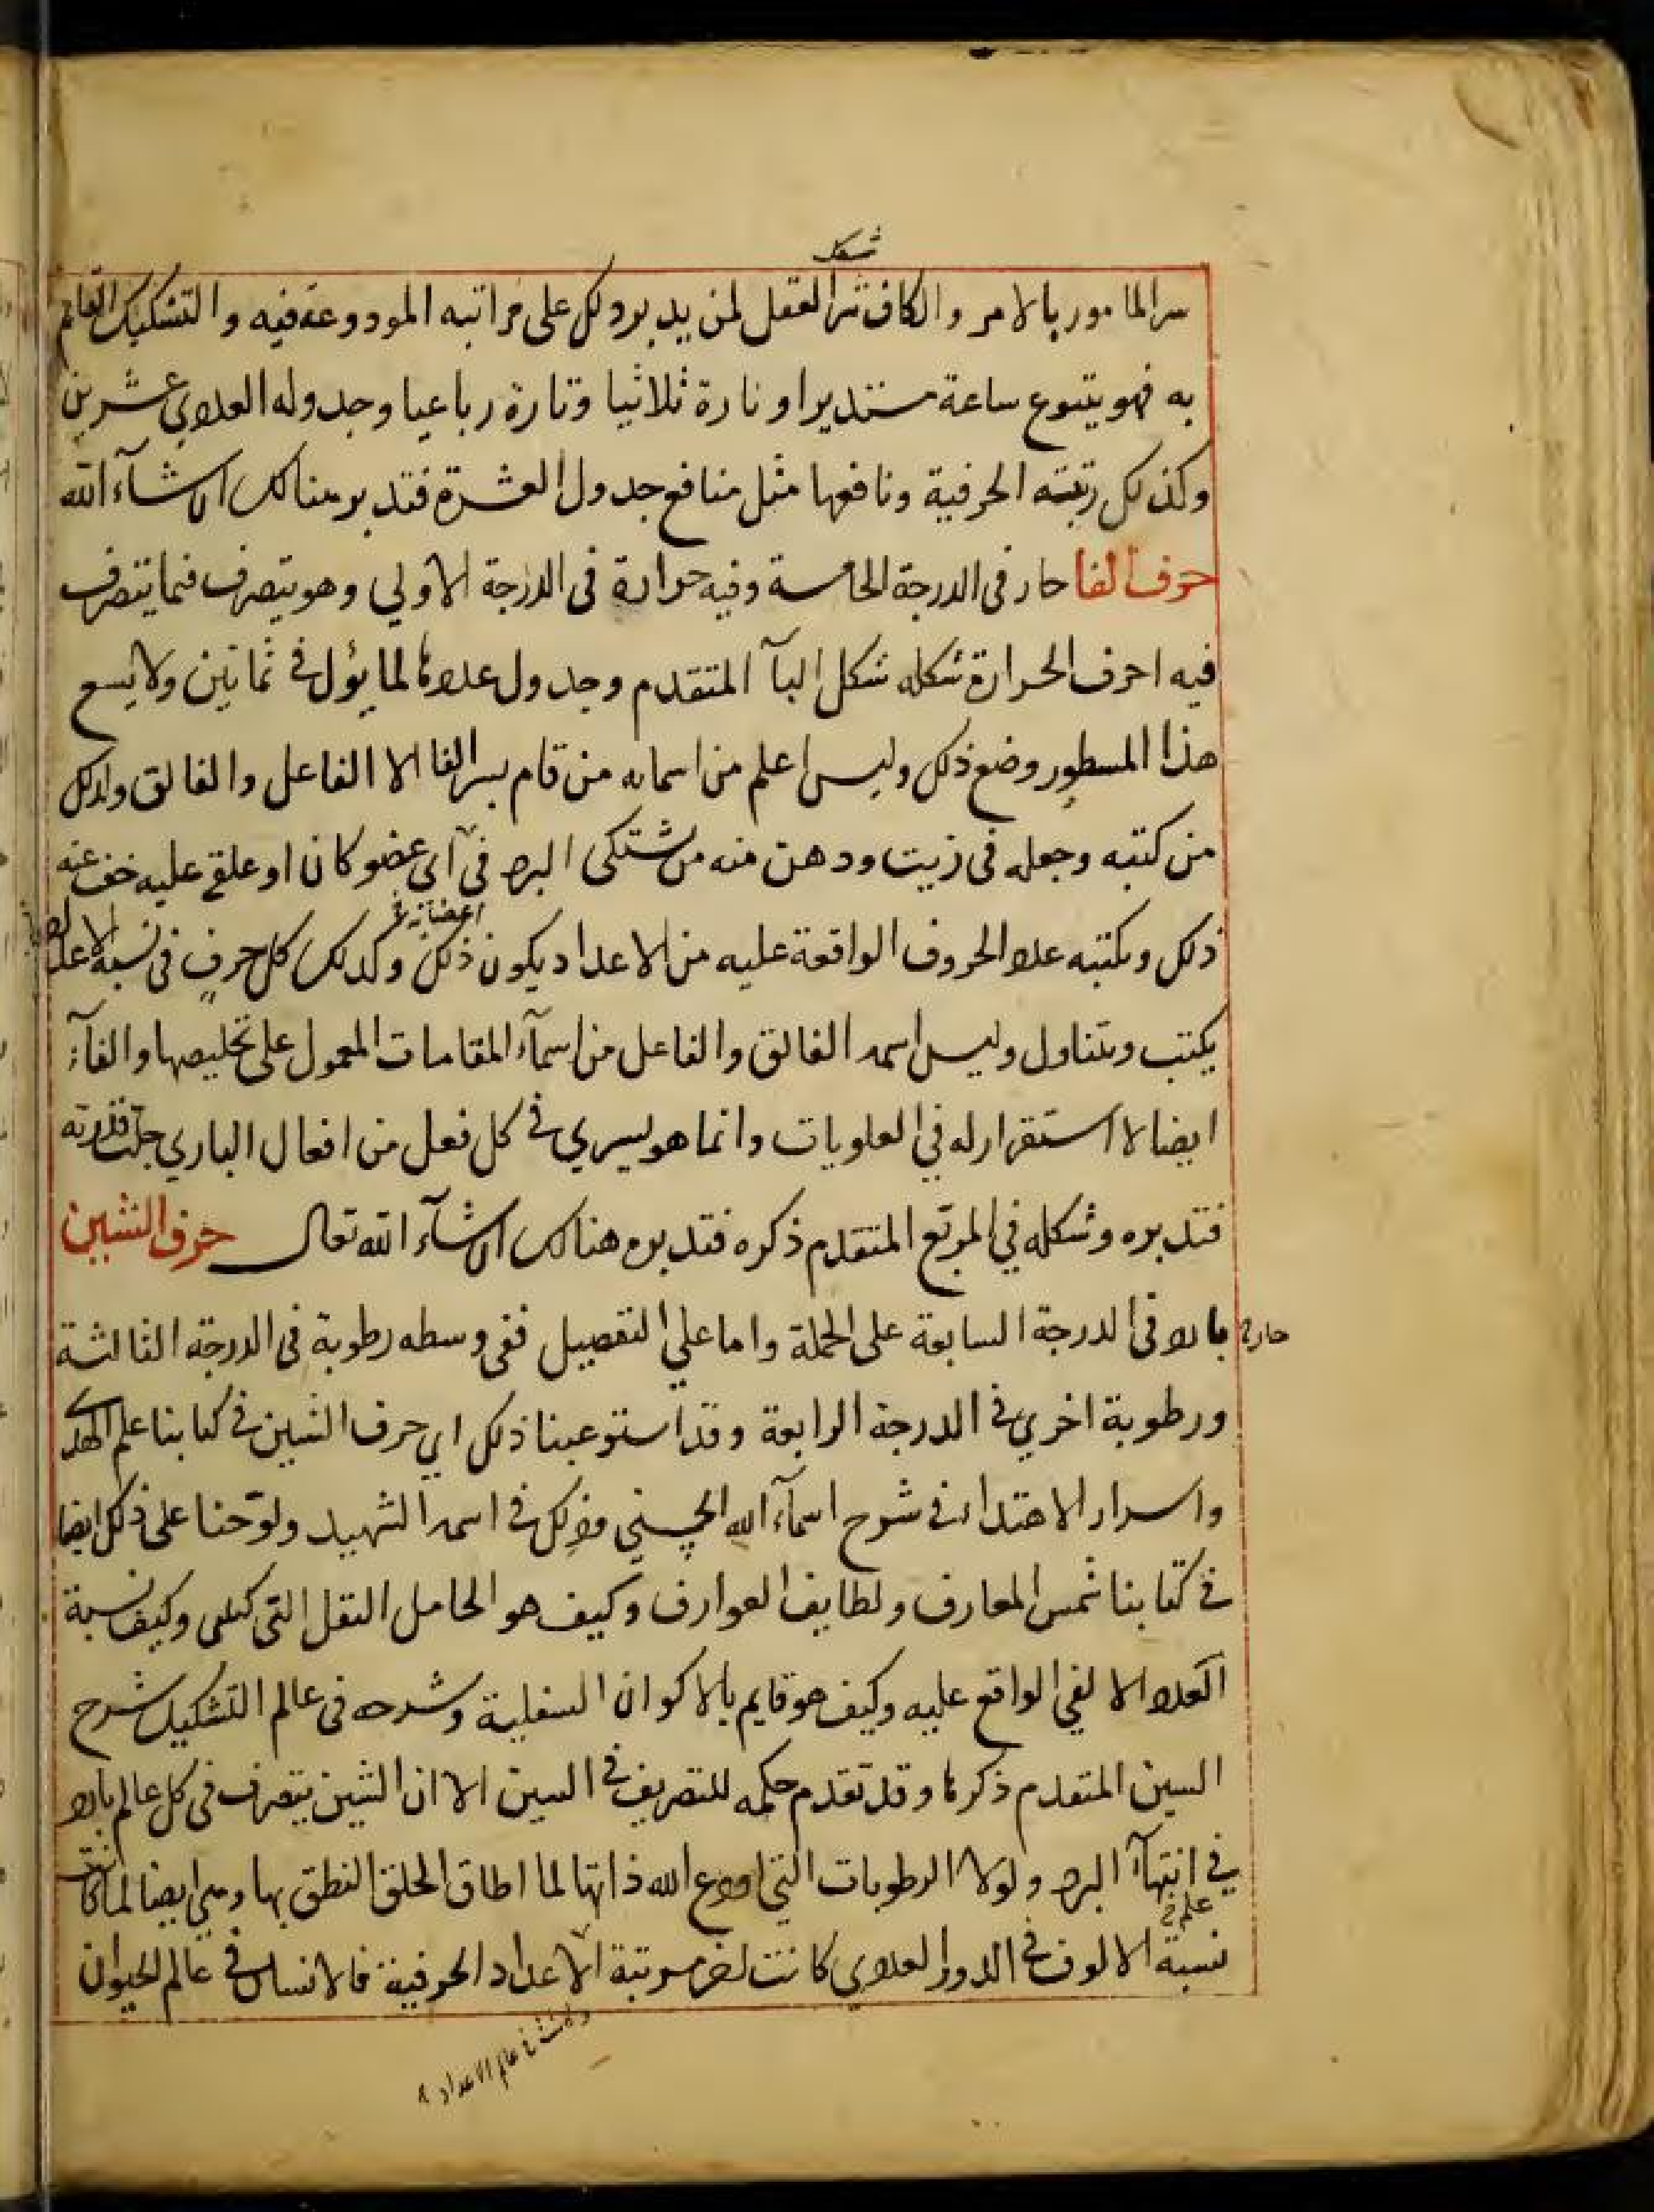 شكل
سر المامور بالامر والكاف سر العقل لمن يدبر وكل على مراتبه المودوعة فيه والتشكيك القائم
به فهو يتنوع ساعة مستديرا وتارة ثلاثيا وتارة رباعيا وجدوله العددي عشرين
وكذلك رتبته الحرفية ونافعها مثل منافع جدول العشرة فتدبر هنالك ان شآء الله
حرف الفا حار في الدرجة الخامسة وفيه حرارة في الدرجة الاولي وهو يتصرف فيما يتصرف
فيه احرف الحرارة شكله شكل البآ المتقدم وجدول عددها لما يؤل في ثمانين ولا يسع
هذا المسطور وضع ذلك وليس اعلم من اسمايه من قام بسر الفا الا الفاعل والفالق وذلك
من كتبه وجعله في زيت ودهن منه من شتكى البرد في آي عضو كان او علق عليه خف عنه
ذلك ويكتبه عدد الحروف الواقعة عليه من الاعداد يكون ذلك وكذلك كل حرف في نسبة الاعداد
اعضائه
يكتب ويتناول وليس اسمه الفالق والفاعل من اسمآء المقامات المعمول على تخليصها والفآء
ايضا لا استقرار له في العلويات وانما هو يسري في كل فعل من افعال الباري جلت قدرته
فتدبره وشكله في المربع المتقدم ذكره فتدبره هنالك ان شآء الله تعالى حرف الشين
بارد في الدرجة السابعة على الجملة واما علي التفصيل ففي وسطه رطوبة في الدرجة الثالثة
حارة
ورطوبة اخري في الدرجة الرابعة وقد استوعبنا ذلك اي حرف الشين في كتابنا علم الهدى
واسرار الاهتداء في شرح اسمآء الله الحسني وذلك في اسمه الشهيد ولوحنا على ذلك ايضا
في كتابنا شمس المعارف ولطايف العوارف وكيف هو الحامل الثقل التي وكيف نسبة
العدد الالفي الواقع عليه وكيف هو قايم بالاكوان السفلية وشرحه في عالم التشكيل شرح
السين المتقدم ذكرها وقد تقدم حكمه للتصريف في السين الا ان الشين يتصرف في كل عالم بارد
في انتهآء البرد ولولا الرطوبات التي اودع الله ذاتها لما اطاق الخلق النطق بها وهي ايضا لما كانت
علم في
نسبة الالوف في الدور العددي كانت لخر مرتبة الاعداد الحرفية فالانسان في عالم الحيوان
في عالم الاعداد